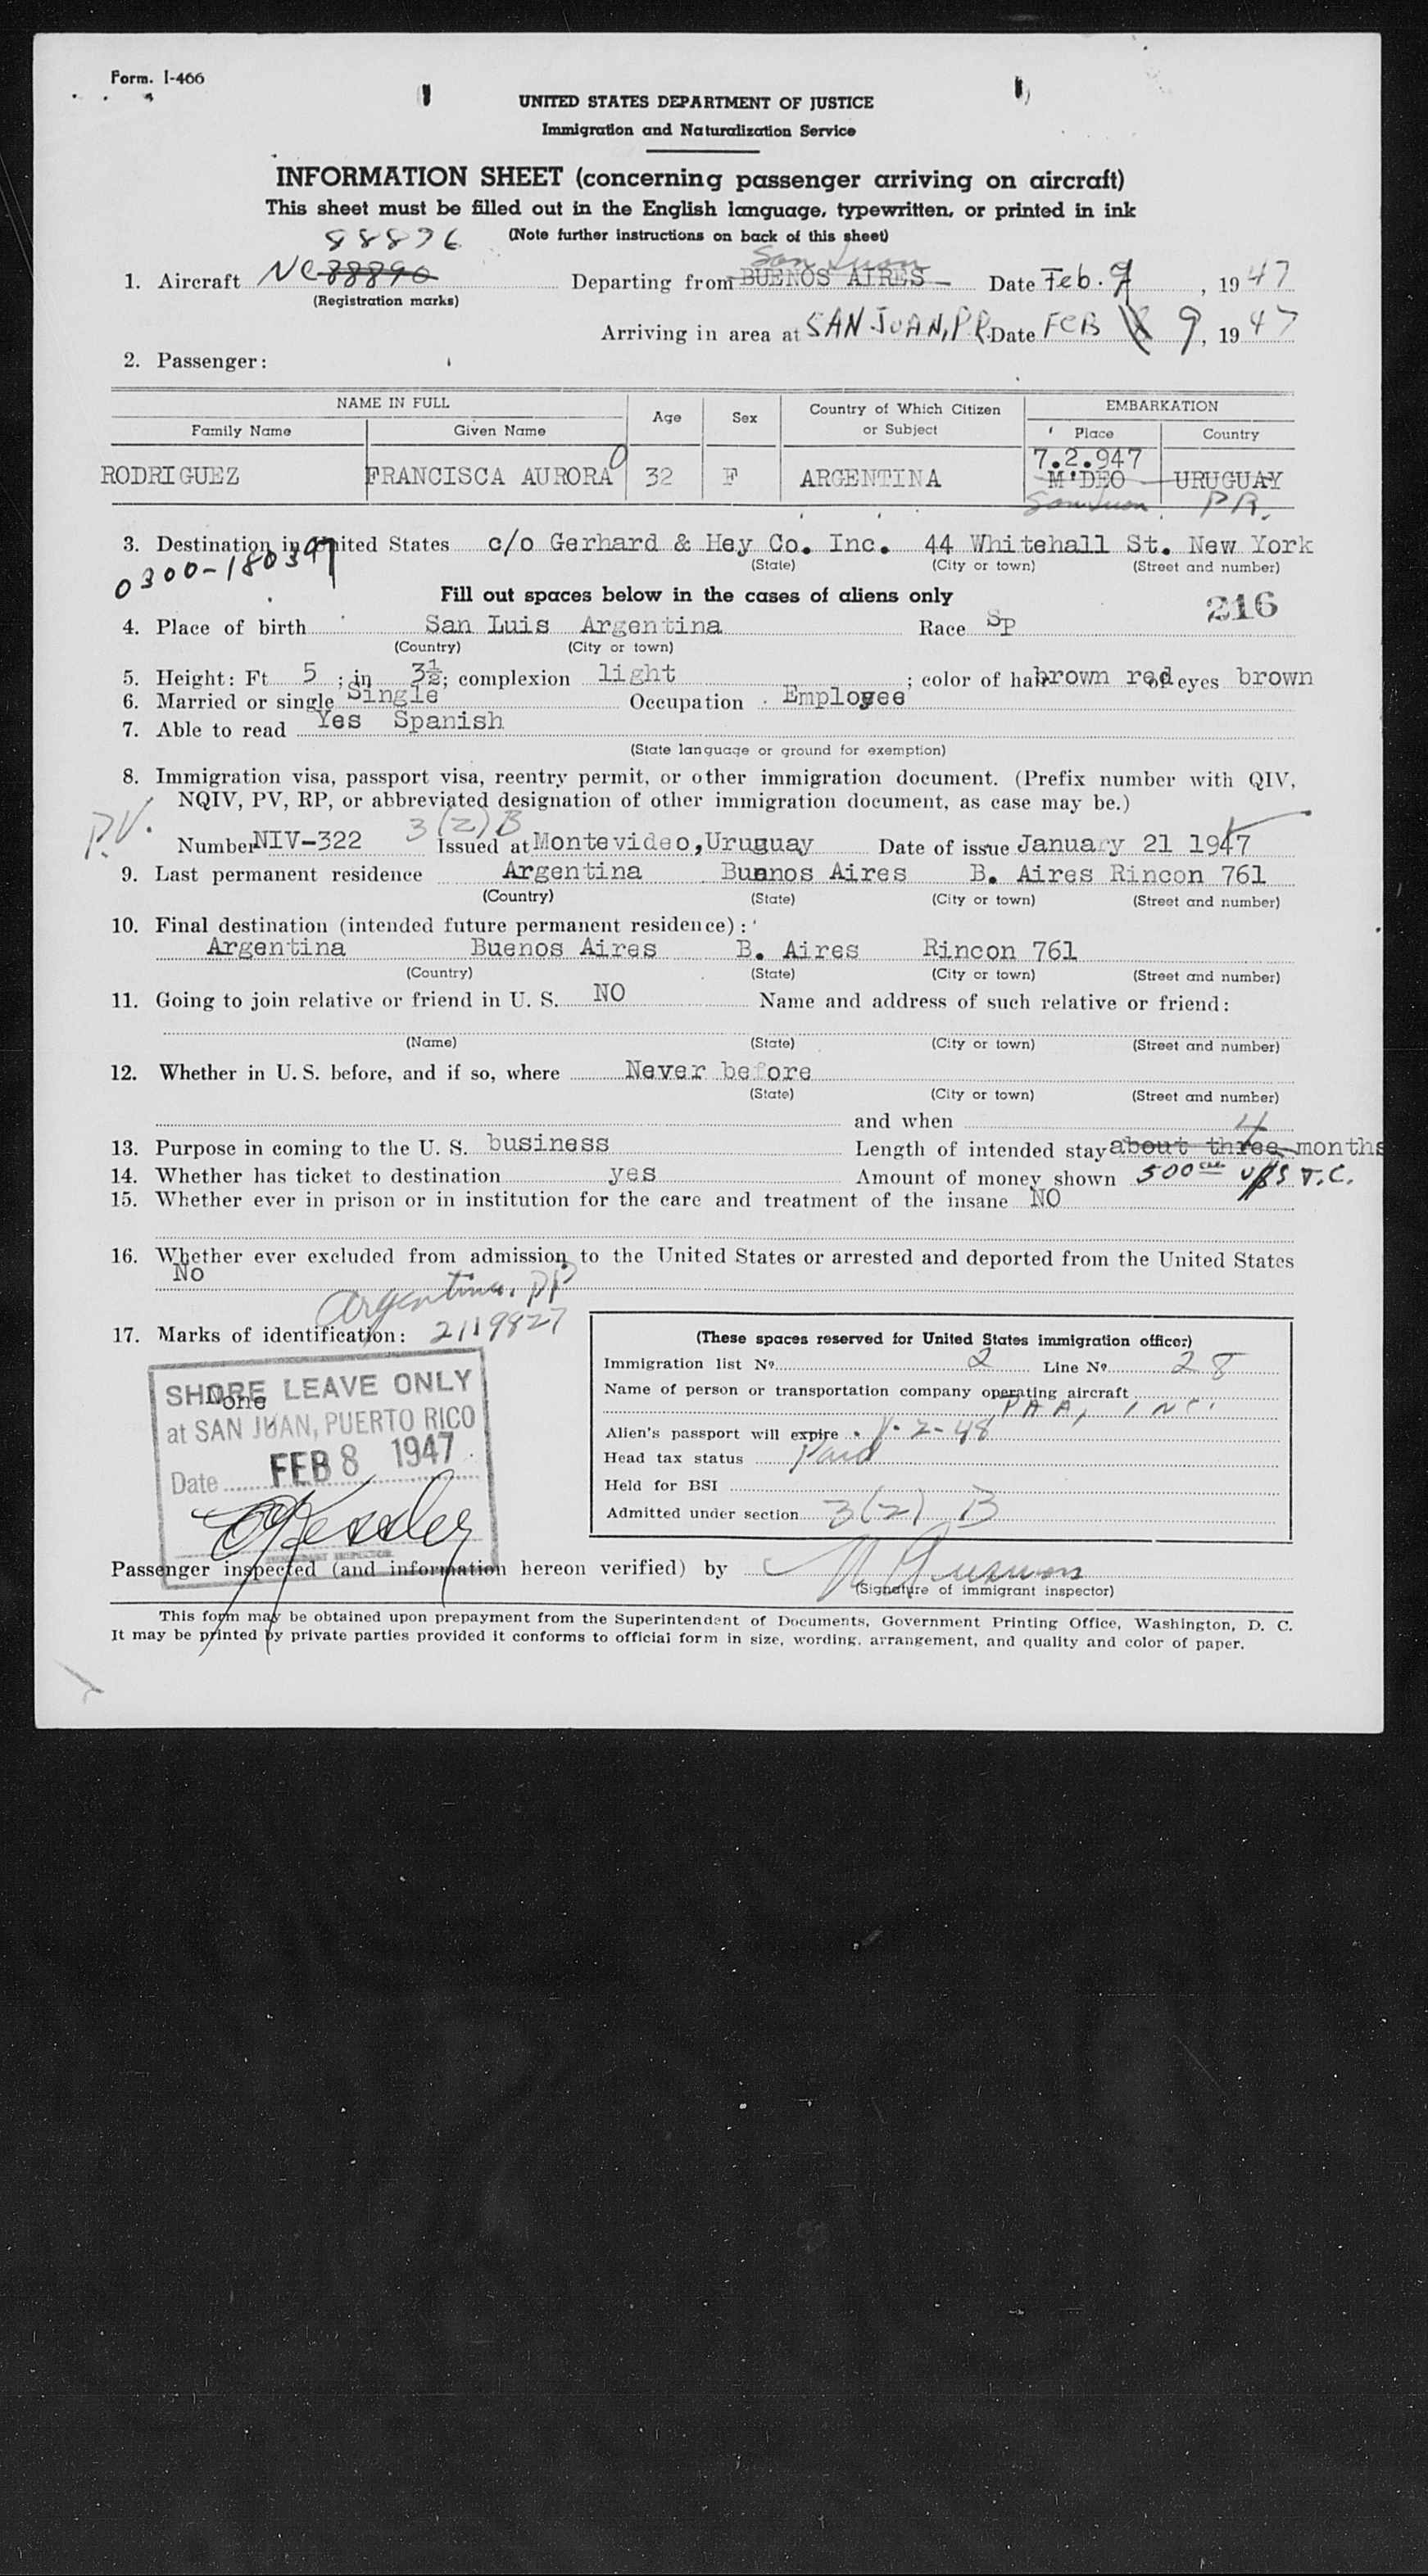 Form. I-466
UNITED STATES DEPARTMENT OF JUSTICE
Immigration and Naturalization Service
INFORMATION SHEET (concerning passenger arriving on aircraft)
This sheet must be filled out in the English language, typewritten, or printed in ink
(Note further instructions on back of this sheet)
88896
San Juan
1. Aircraft NC 88890 Departing from BUENOS AIRES Date Feb. 9, 1947
(Registration marks)
Arriving in area at SAN JUAN, P.R. Date FEB 8 9, 1947
2. Passenger:
NAME IN FULL Age Sex Country of Which Citizen or Subject EMBARKATION
Family Name Given Name Place Country
7.2.947
RODRIGUEZ FRANCISCA AURORA 32 F ARGENTINA M'DEO URUGUAY
San Juan P.R.
3. Destination in United States c/o Gerhard & Hey Co. Inc. 44 Whitehall St. New York
(State) (City or town) (Street and number)
0300-180397
Fill out spaces below in the cases of aliens only
216
4. Place of birth San Luis Argentina Race Sp
(Country) (City or town)
5. Height: Ft 5 ; in 3½; complexion light ; color of hair brown red of eyes brown
6. Married or single Single Occupation Employee
7. Able to read Yes Spanish
(State language or ground for exemption)
8. Immigration visa, passport visa, reentry permit, or other immigration document. (Prefix number with QIV,
NQIV, PV, RP, or abbreviated designation of other immigration document, as case may be.)
P.V. 3(2)B
Number NIV-322 Issued at Montevideo, Uruguay Date of issue January 21 1947
9. Last permanent residence Argentina Buenos Aires B. Aires Rincon 761
(Country) (State) (City or town) (Street and number)
10. Final destination (intended future permanent residence):
Argentina Buenos Aires B. Aires Rincon 761
(Country) (State) (City or town) (Street and number)
11. Going to join relative or friend in U. S. NO Name and address of such relative or friend:
(Name) (State) (City or town) (Street and number)
12. Whether in U. S. before, and if so, where Never before
(State) (City or town) (Street and number)
and when
4
13. Purpose in coming to the U. S. business Length of intended stay about three months
14. Whether has ticket to destination yes Amount of money shown 500 U$S T.C.
15. Whether ever in prison or in institution for the care and treatment of the insane NO
16. Whether ever excluded from admission to the United States or arrested and deported from the United States
No
Argentina. PP
17. Marks of identification: 2119827
None
SHORE LEAVE ONLY
at SAN JUAN, PUERTO RICO
Date FEB 8 1947
IMMIGRANT INSPECTOR
(These spaces reserved for United States immigration officer)
Immigration list Nº 2 Line Nº 28
Name of person or transportation company operating aircraft
PAA, INC.
Alien's passport will expire 1-2-48
Head tax status Paid
Held for BSI
Admitted under section 3(2) B
Passenger inspected (and information hereon verified) by
(Signature of immigrant inspector)
This form may be obtained upon prepayment from the Superintendent of Documents, Government Printing Office, Washington, D. C.
It may be printed by private parties provided it conforms to official form in size, wording, arrangement, and quality and color of paper.